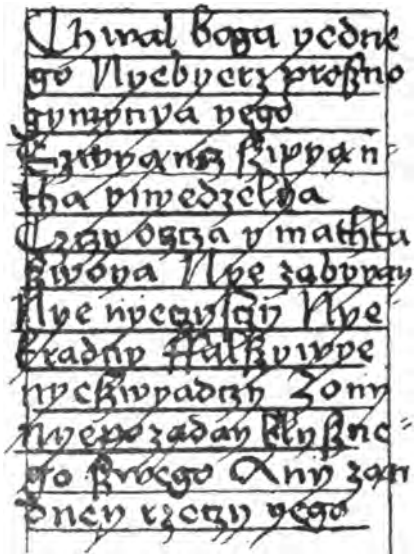 Chwal boga yedne
go Nyebyerz proszno
gymyenya yego
Czwyancz szwyan
tha ynyedzelya
Cztzy oycza y mathka
szwoya Nye zabyyay
Nye nyeczysczy Nye
kradny ffalszywye
nyeszwyadczy Zony
nyepozaday blysne
go szwego Any zan
dney rzeczy yego